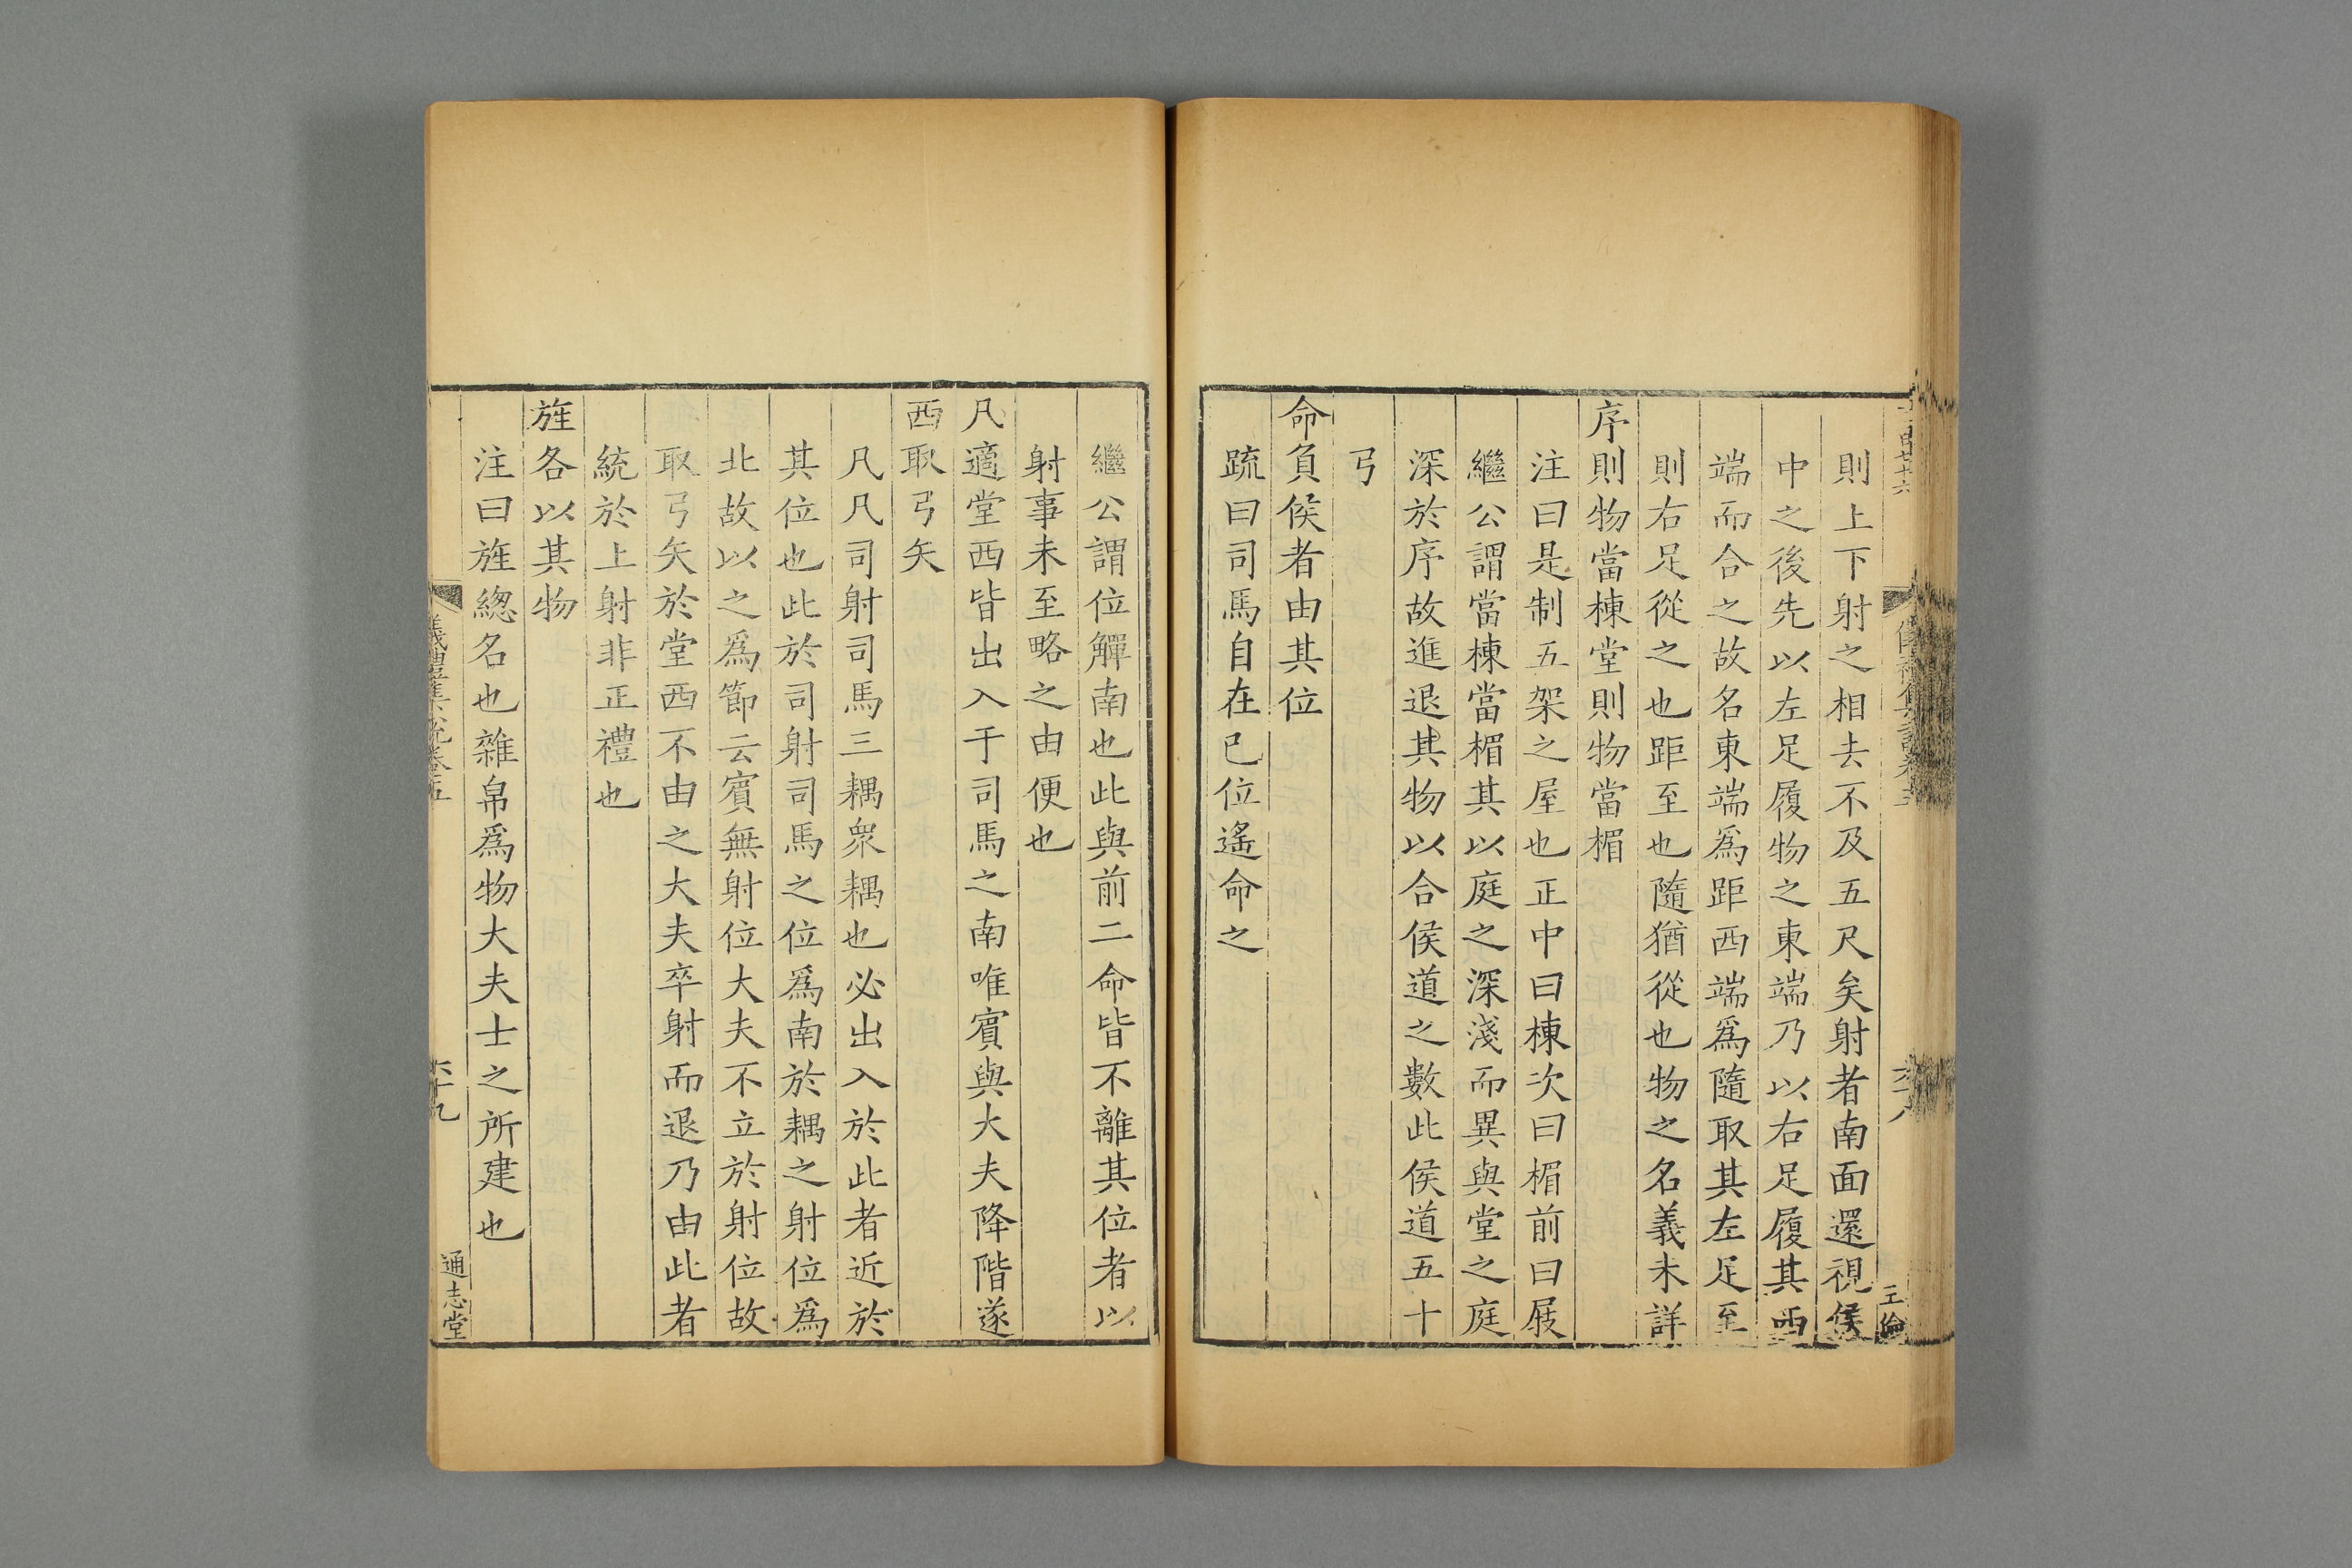 則上下射之相去不及五尺矣射者南面還視侯
中之後先以左足履物之東端乃以右足履其西
端而合之故名東端爲距西端爲隨取其左足至
則右足從之也距至也隨猶從也物之名義未詳
序則物當棟堂則物當楣
注曰是制五架之屋也正中曰棟次曰楣前曰庪
繼公謂當棟當楣其以庭之深淺而異與堂之庭
深於序故進退其物以合侯道之數此侯道五十
弓
命負侯者由其位
疏曰司馬自在已位遙命之
王倫
繼公謂位觶南也此與前二命皆不離其位者以
射事未至略之由便也
凡適堂西皆出入于司馬之南唯賓與大夫降階遂
西取弓矢
凡凡司射司馬三耦衆耦也必出入於此者近於
其位也此於司射司馬之位爲南於耦之射位爲
北故以之爲節云賓無射位大夫不立於射位故
取弓矢於堂西不由之大夫卒射而退乃由此者
統於上射非正禮也
旌各以其物
注曰旌緫名也雜帛爲物大夫士之所建也
六十九
通志堂